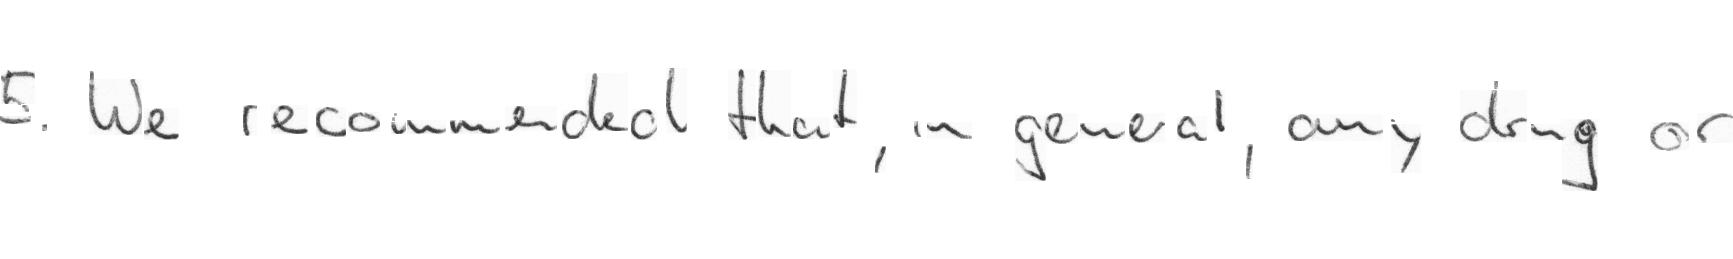 5. We recommended that, in general, any drug or